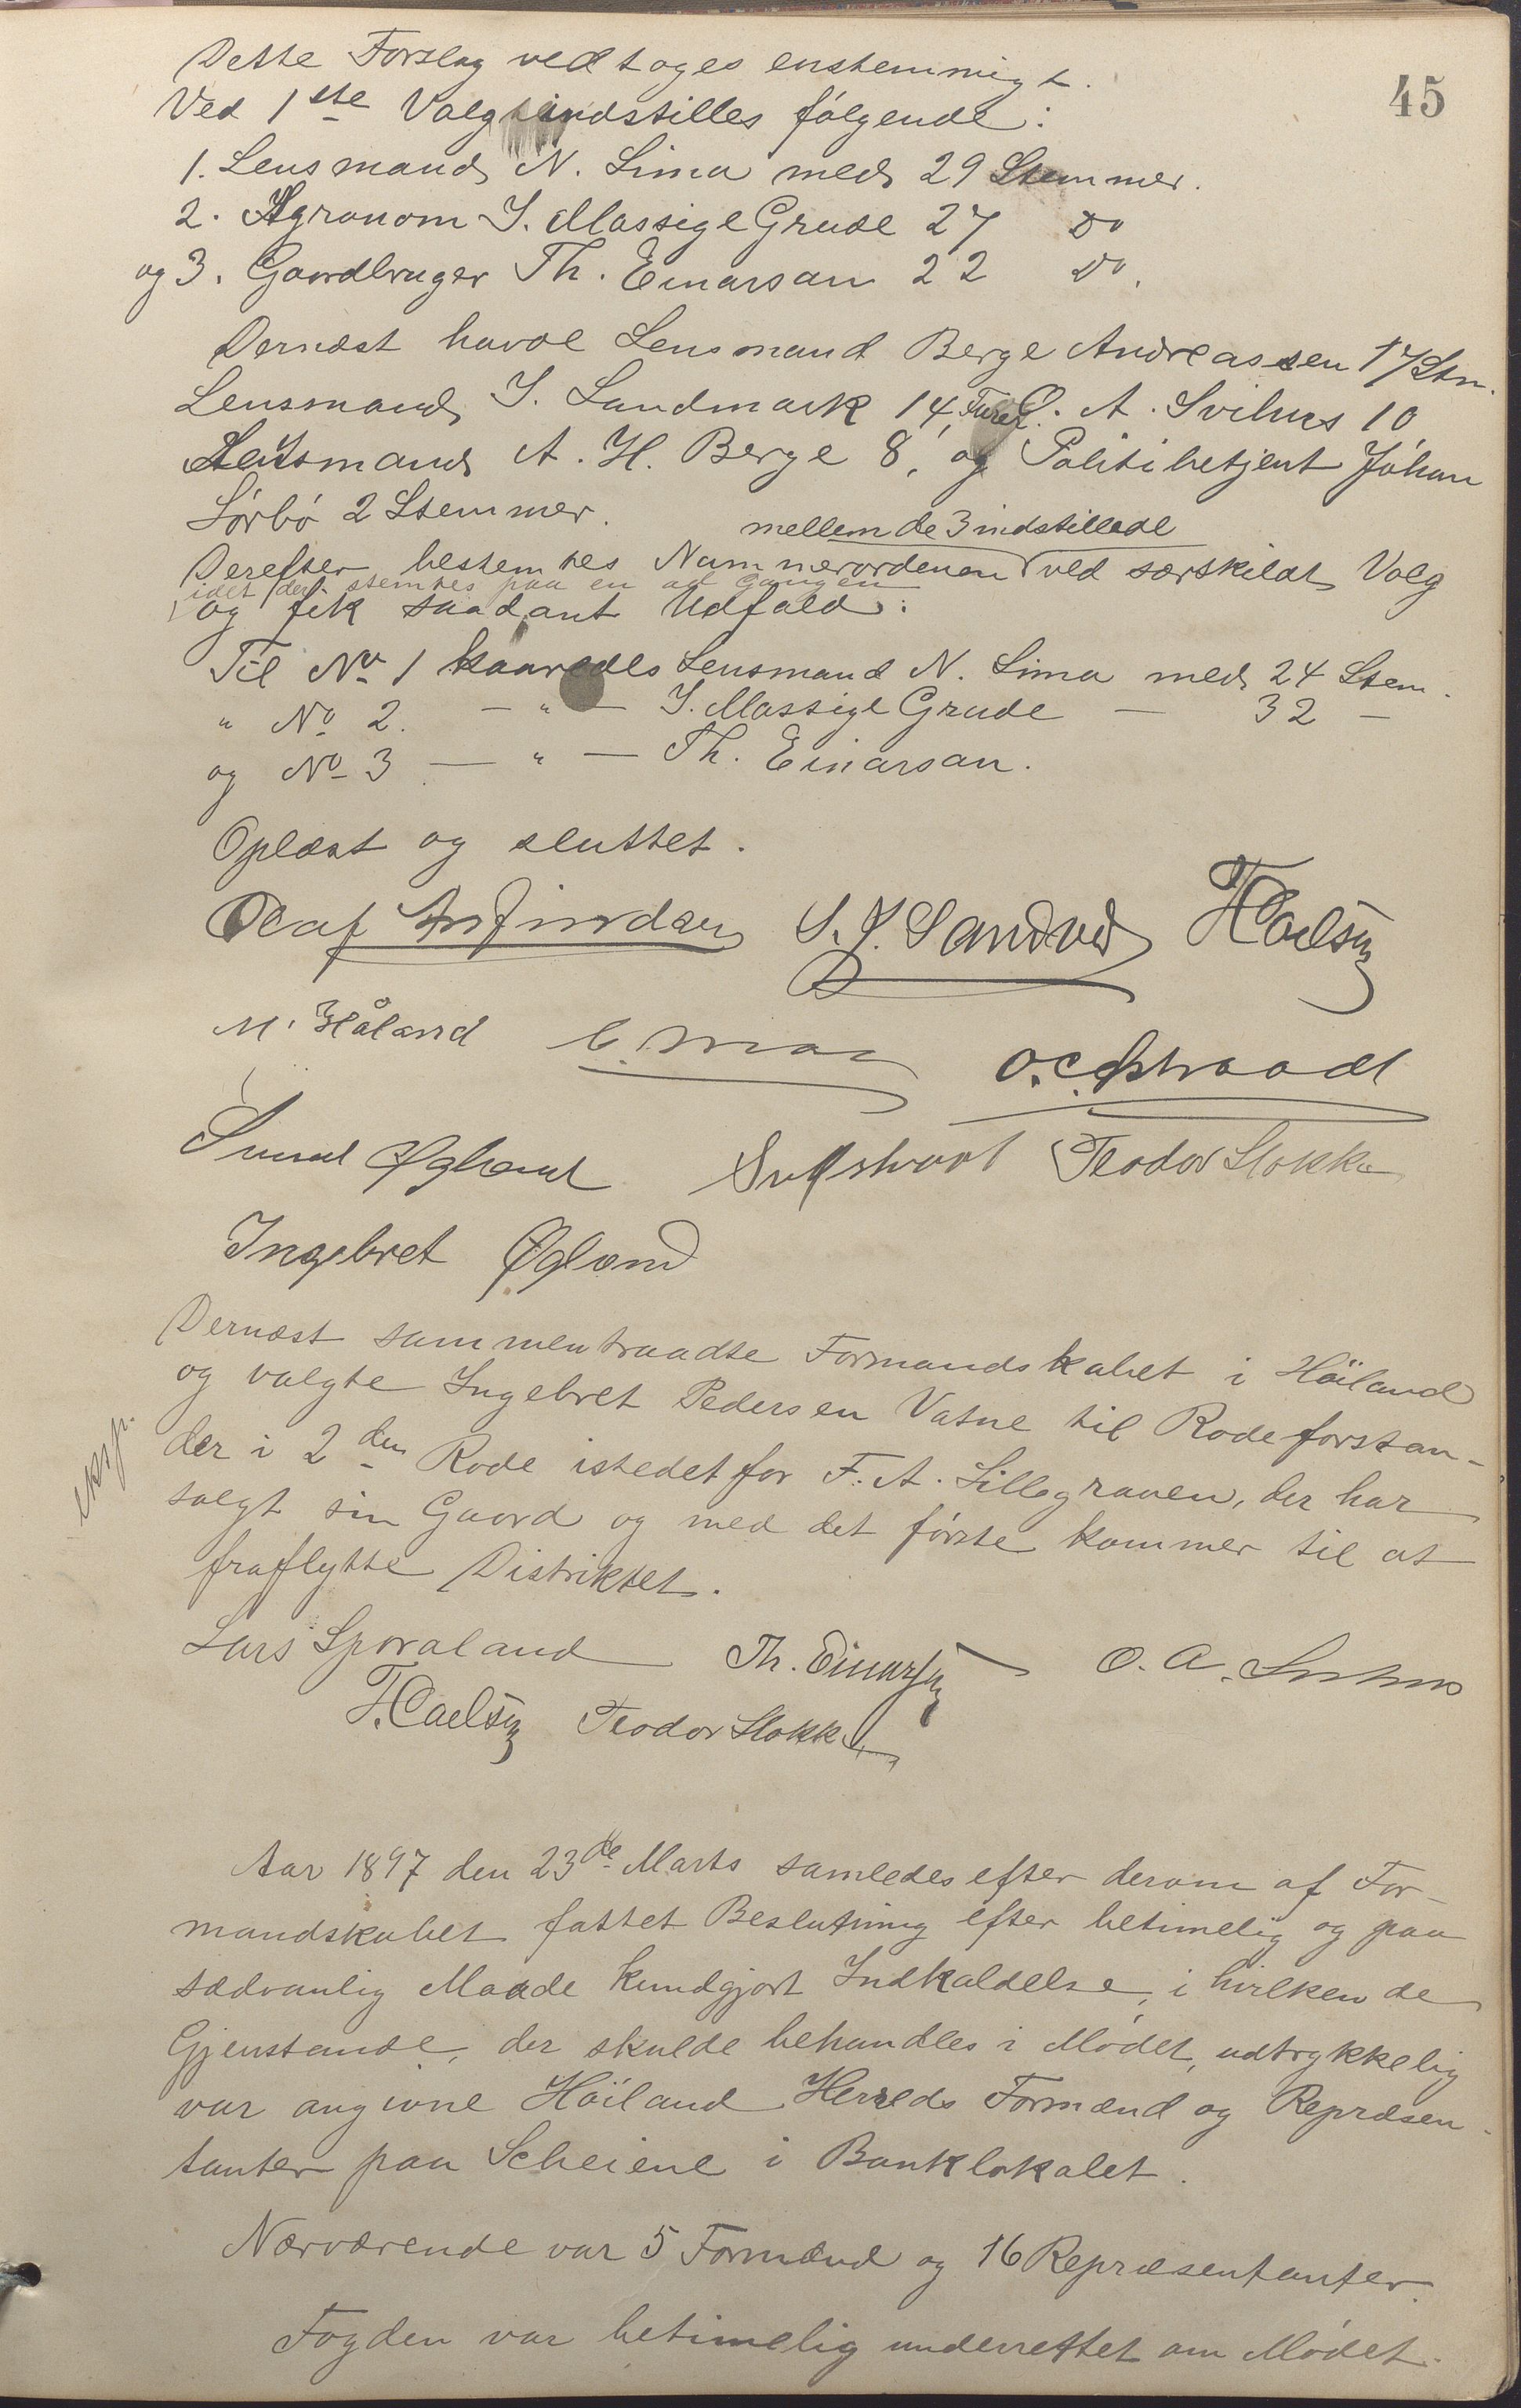 45
Dette Forslag vedtoges enstemmigt.
Ved 1ste Valg indstilles følgende:
1. Lensmand N. Lima med 29 Stemmer.
2. Agronom I. Massige Grude 27 Do
og 3. Gaardbruger Th. Einarsan 22 Do.
Dernæst havde Lensmand Berge Andreassen 17 Stm.
Lensmand I. Landmark 14, O. A. Svihus 10
Lensmand A. H. Berge 8, og Politibetjent Johan
Sørbø 2 Stemmer.
mellem de 3 indstillede
Derefter bestemtes Nummerordenen ved særskildt Valg
idet der stemtes paa en ad Gangen
og fik saadant Udfald:
Til No 1 kaaredes Lensmand N. Lima med 24 Stem.
" No 2. — " — I. Massige Grude — 32 —
og No 3 — " — Th. Einarsan.
Oplæst og sluttet.
Olaf Anfindsen S. J. Sandved
M. Håland O. C. Skraadt
Øglænd Teodor Stokka
Ingebret Øglænd
Dernæst sammentraadte Formandskabet i Høiland
og valgte Ingebret Pedersen Vatne til Rodeforstan-
der i 2den Rode istedetfor F. A. Lillegraven, der har
eksp.
solgt sin Gaard og med det første kommer til at
fraflytte Distriktet.
Lars Sporaland Th. Einarsen O. A. Svihus
Teodor Stokka
Aar 1897 den 23de Marts samledes efter derom af For-
mandskabet fattet Beslutning efter betimelig og paa
sædvanlig Maade kundgjort Indkaldelse, i hvilken de
Gjenstande, der skulde behandles i Mødet, udtrykkelig
var angivne Høiland Herreds Formænd og Repræsen-
tanter paa Scheiene i Banklokalet.
Nærværende var 5 Formænd og 16 Repræsentanter.
Fogden var betimelig underrettet om Mødet.